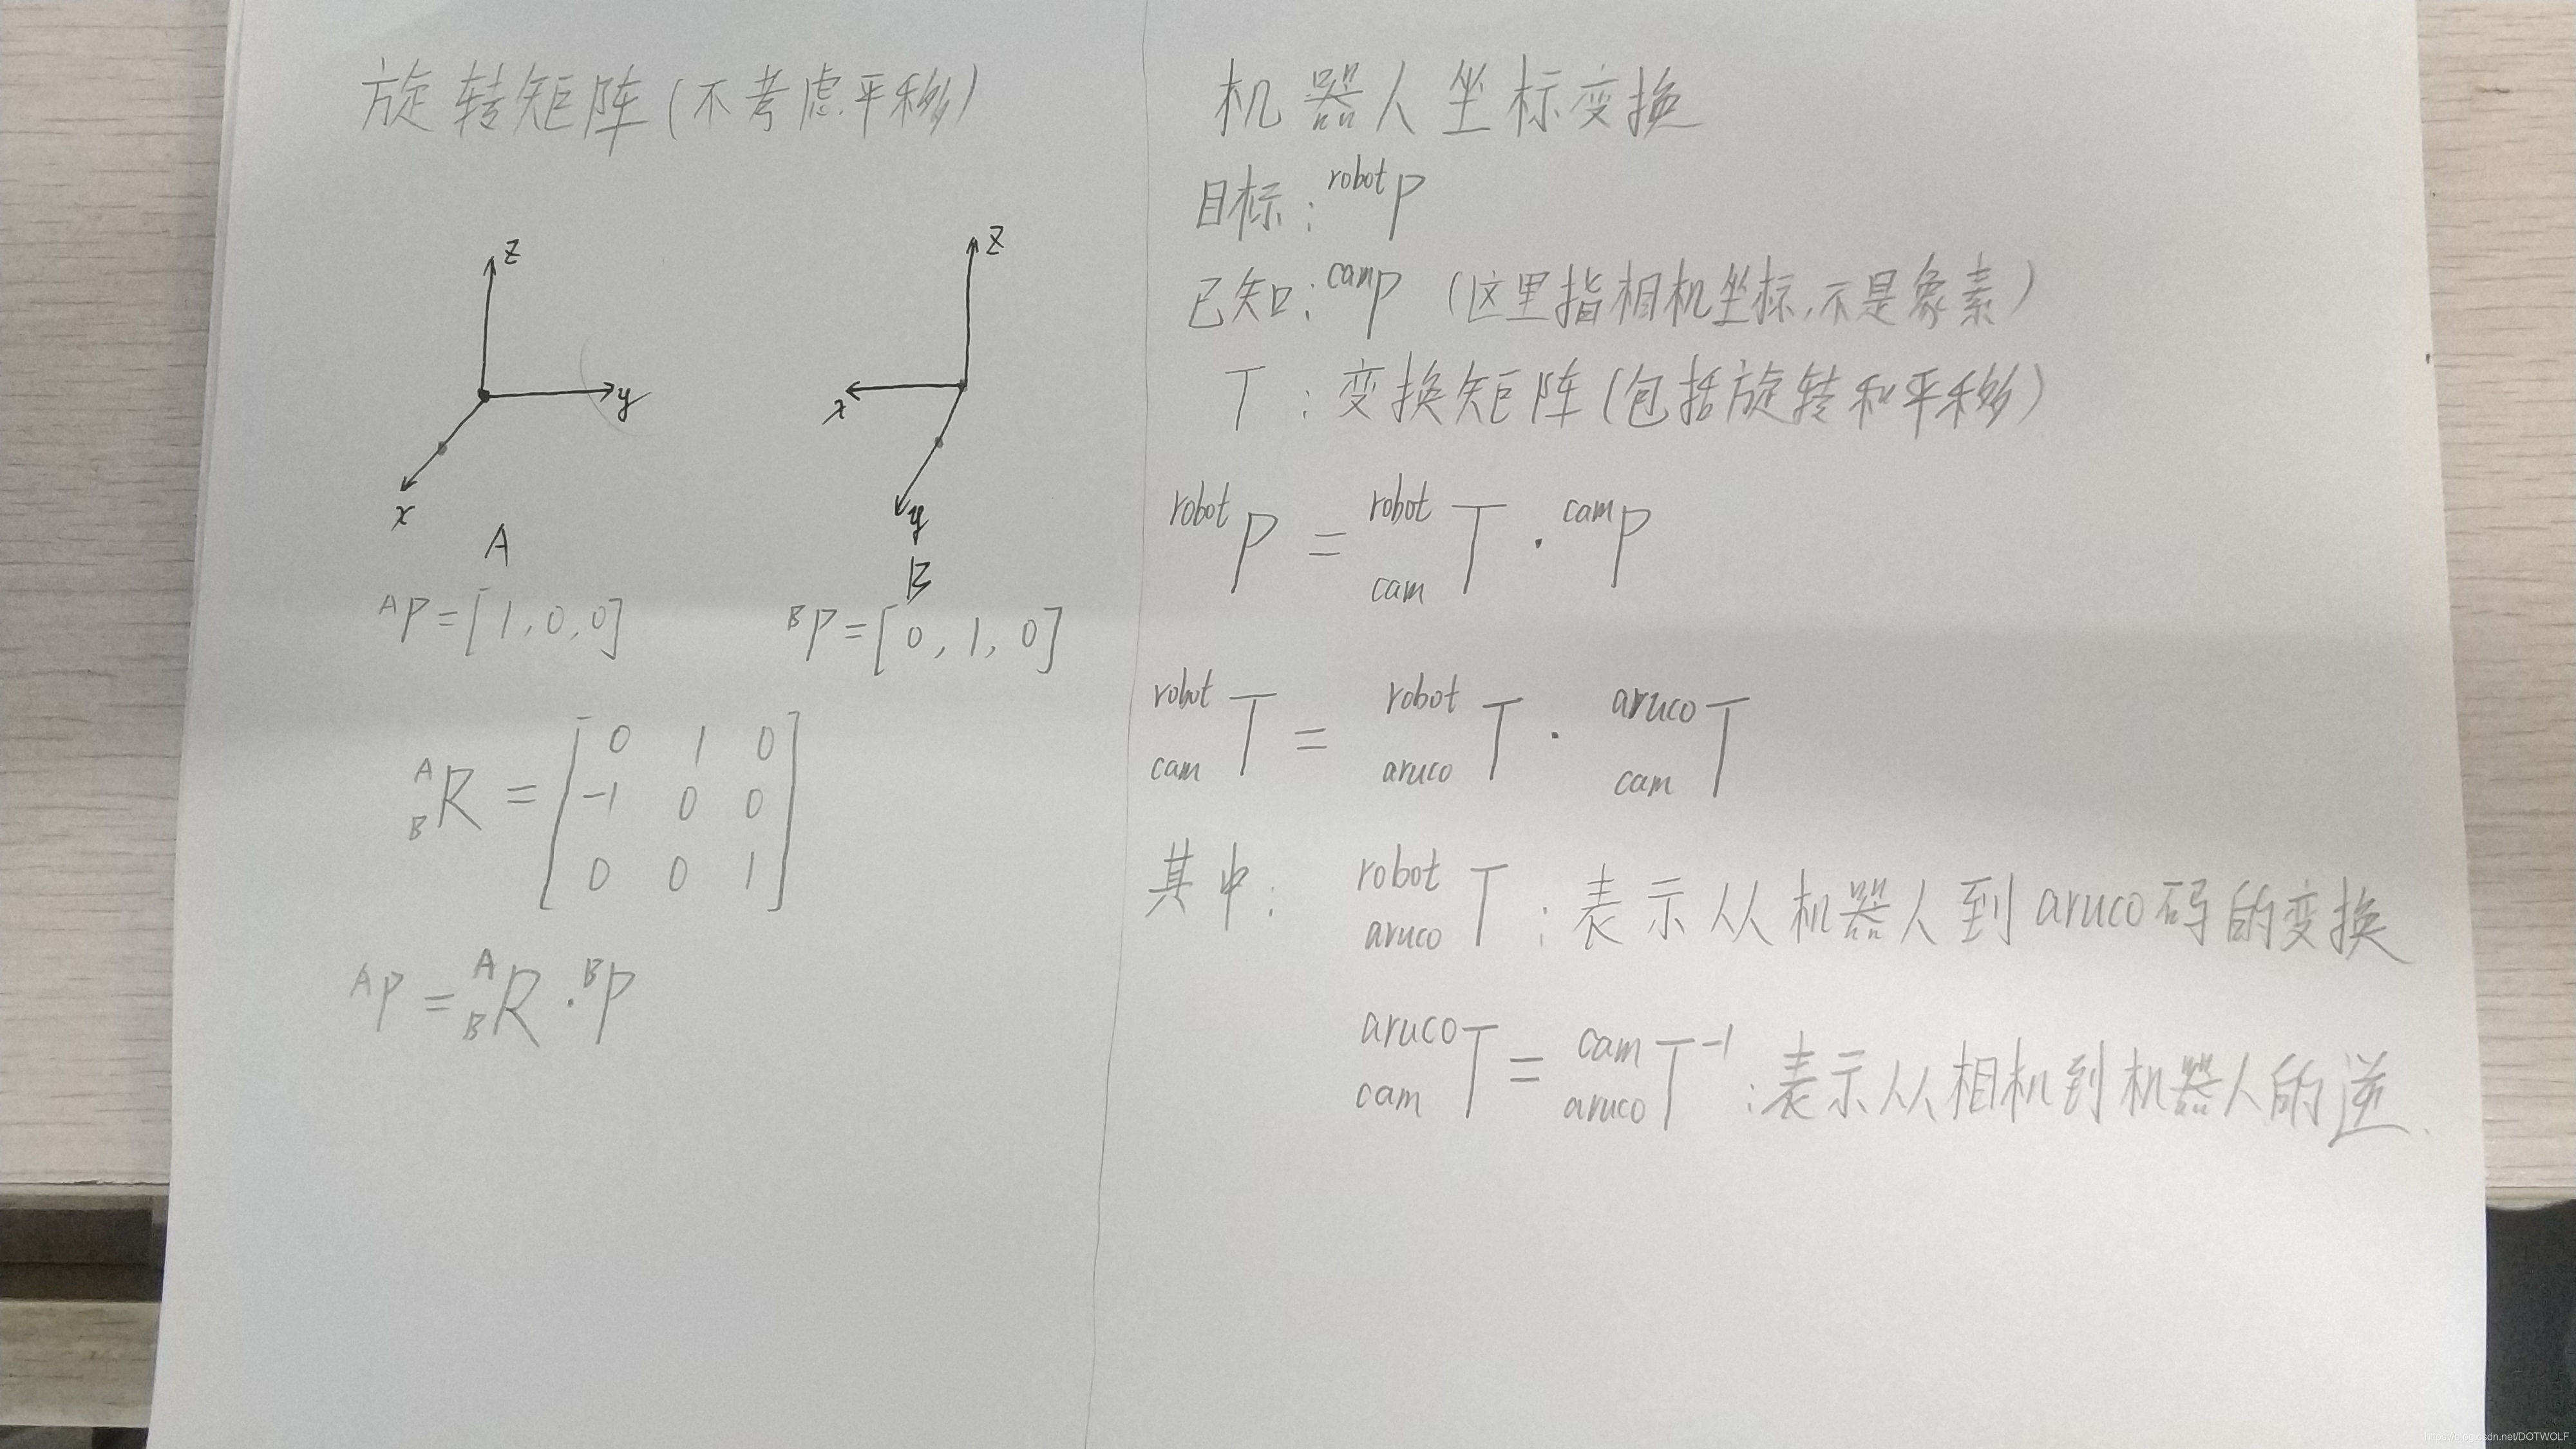 旋转矩阵(不考虑平移)
z
y
x
A
z
x
y
B
ᴬP=[1,0,0]
ᴮP=[0,1,0]
A
B R = [ 0 1 0
-1 0 0
0 0 1 ]
ᴬP = ᴬ_B R · ᴮP
机器人坐标变换
目标: ^robot P
已知: ^cam P (这里指相机坐标,不是象素)
T : 变换矩阵(包括旋转和平移)
^robot P = ^robot _cam T · ^cam P
^robot _cam T = ^robot _aruco T · ^aruco _cam T
其中: ^robot _aruco T : 表示从机器人到aruco码的变换
^aruco _cam T = ^cam _aruco T^-1 : 表示从相机到机器人的逆.
https://blog.csdn.net/DOTWOLF